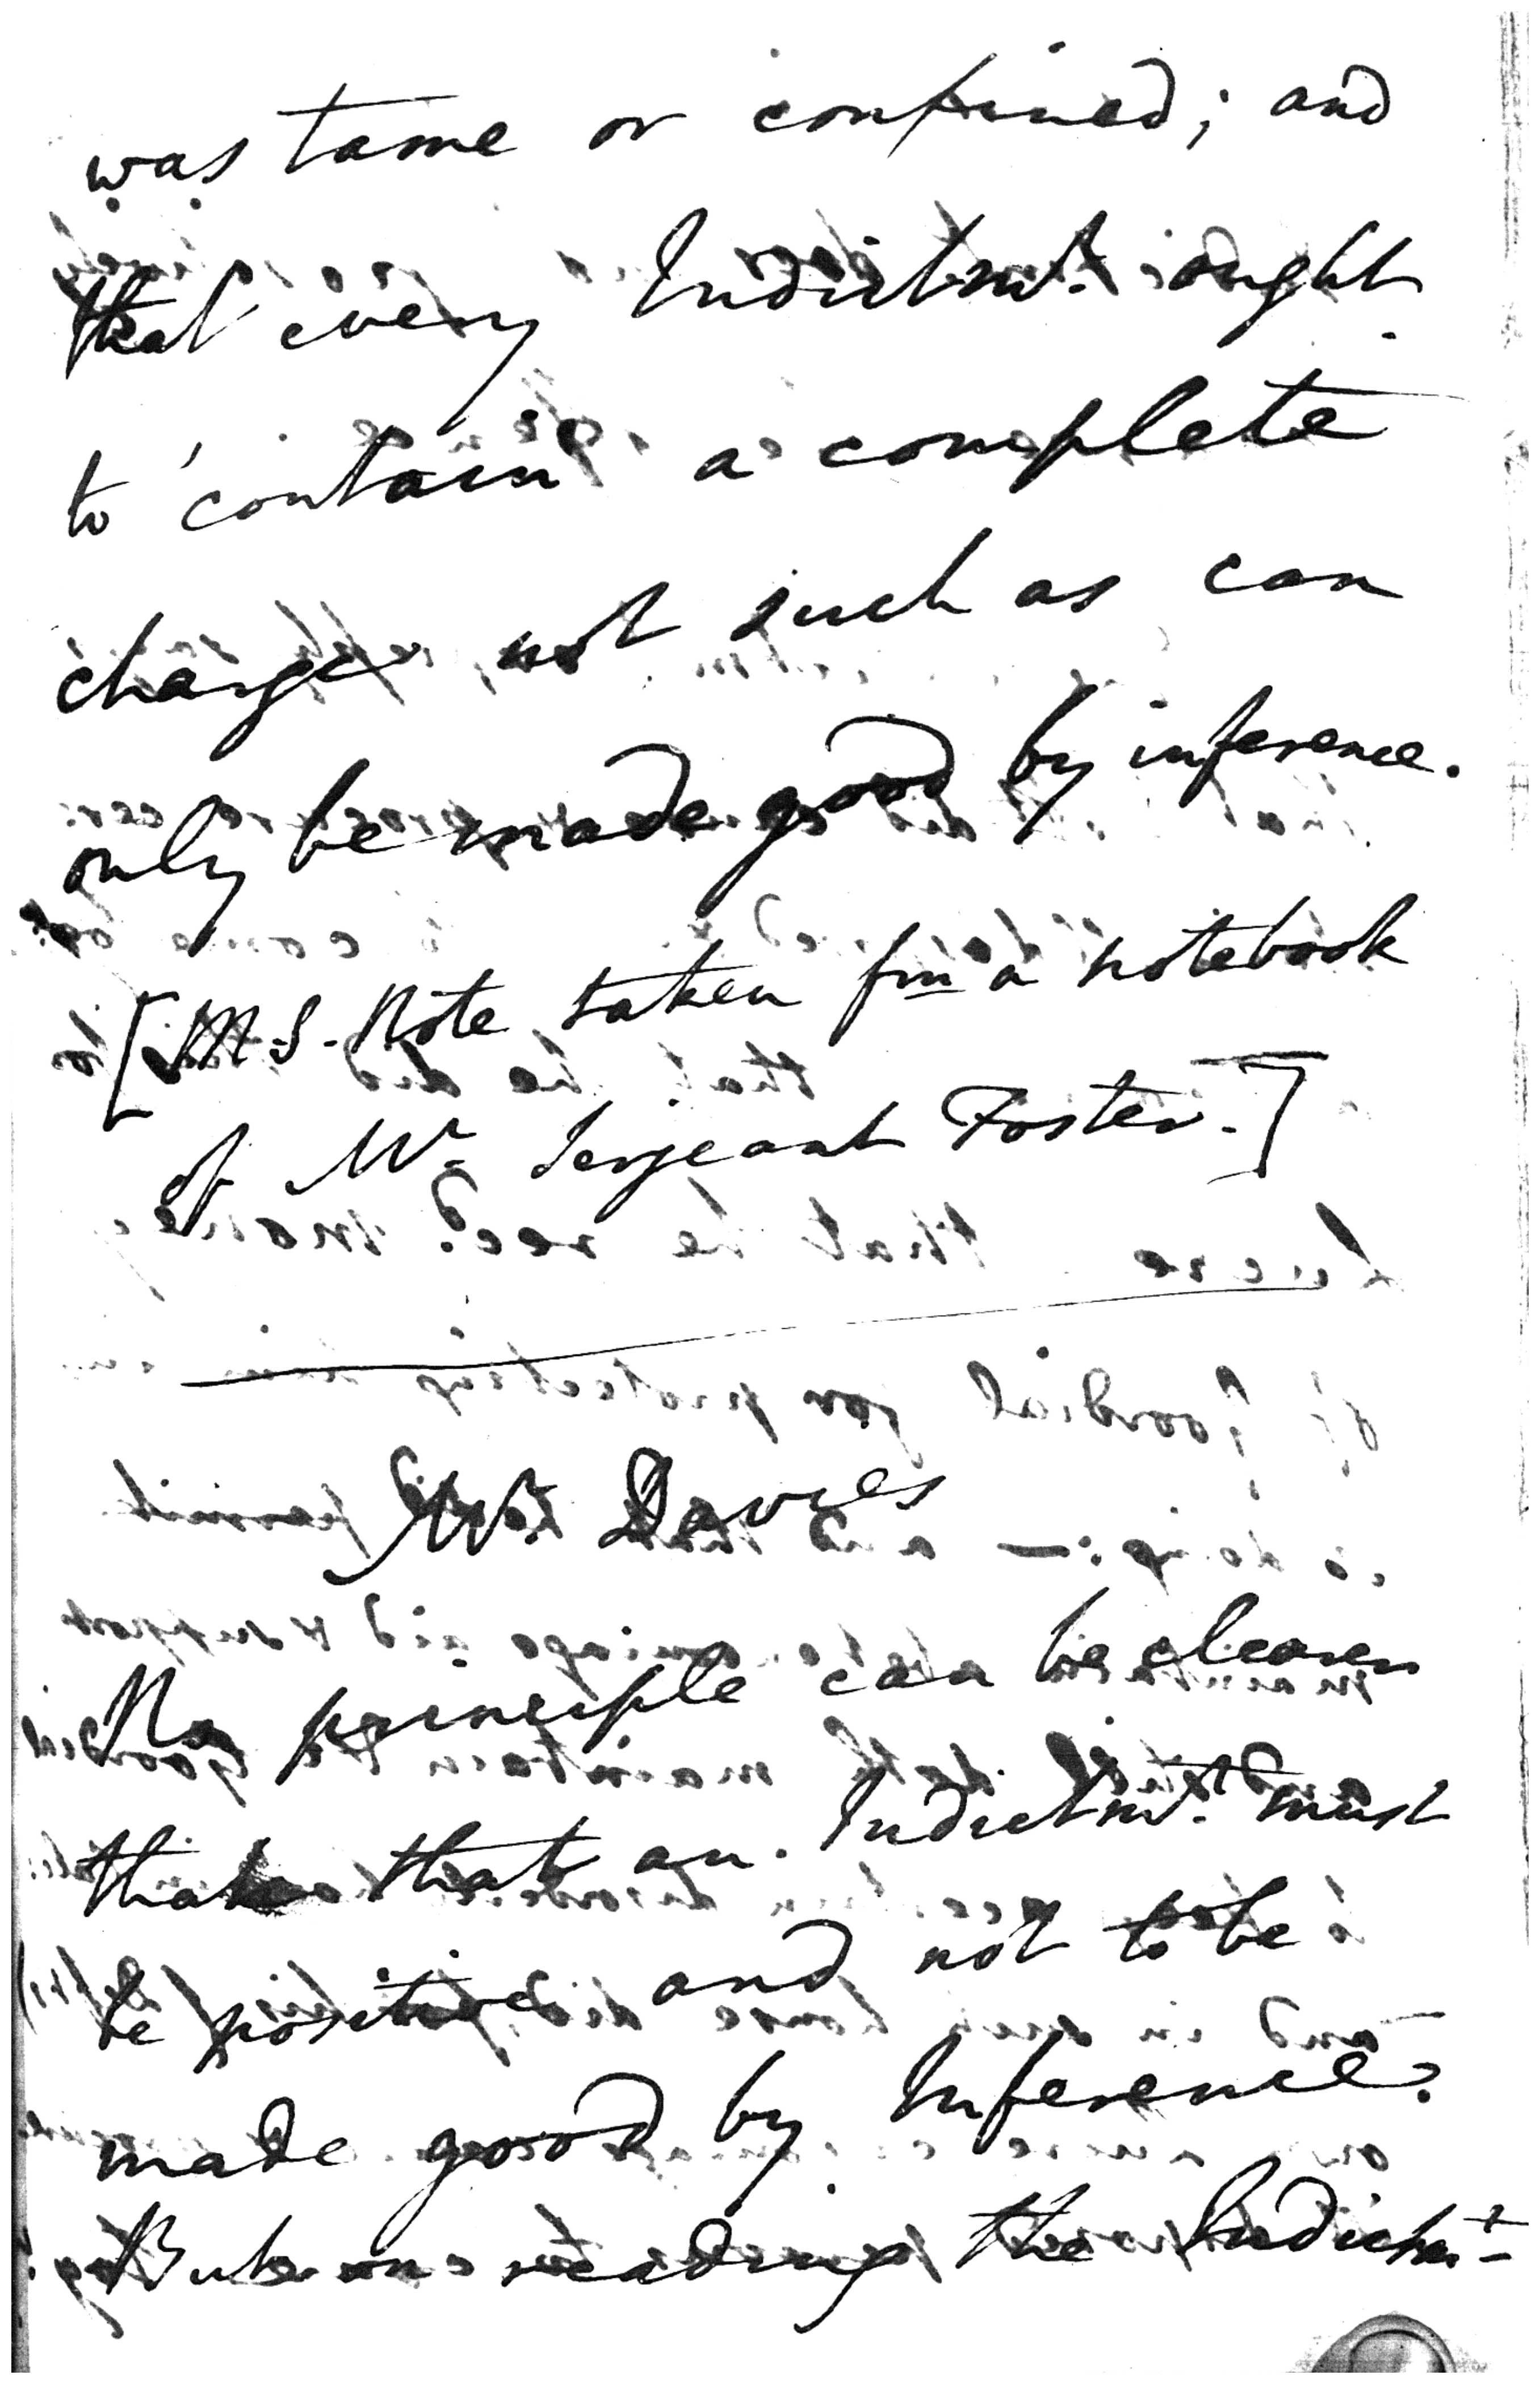 was tame or confined; and
that every Indictmt. ought
to contain a complete
charge not such as can
only be made good by inference.
[M.S. Note taken fm a notebook
of Mr. Serjeant Foster.]
Mr. Davies
No principle can be clearer
than that an Indictmt. must
be positive and not to be
made good by Inference.
But on reading the Indictmt